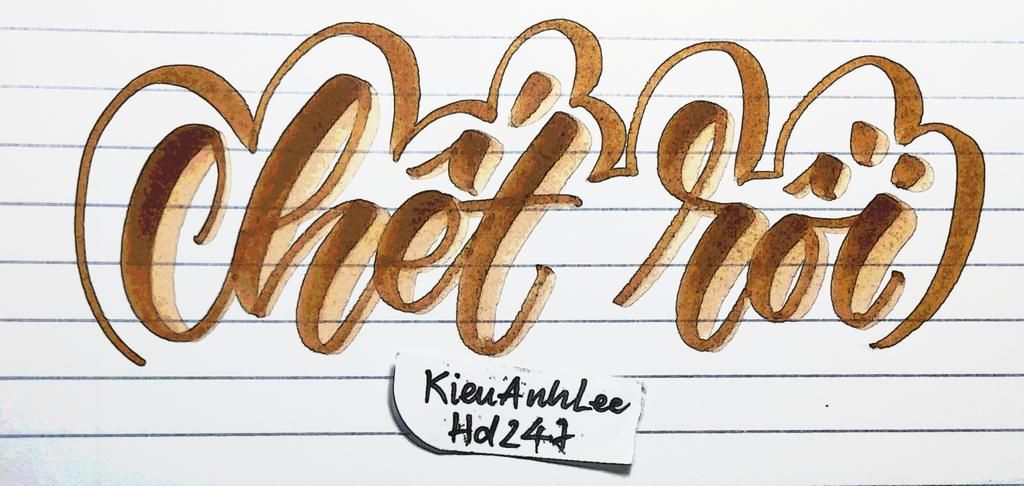 Chết rồi
KieuAnhLee
Hd247